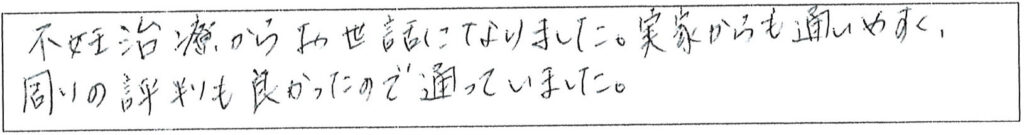 不妊治療からお世話になりました。実家からも通いやすく、
周りの評判も良かったので通っていました。